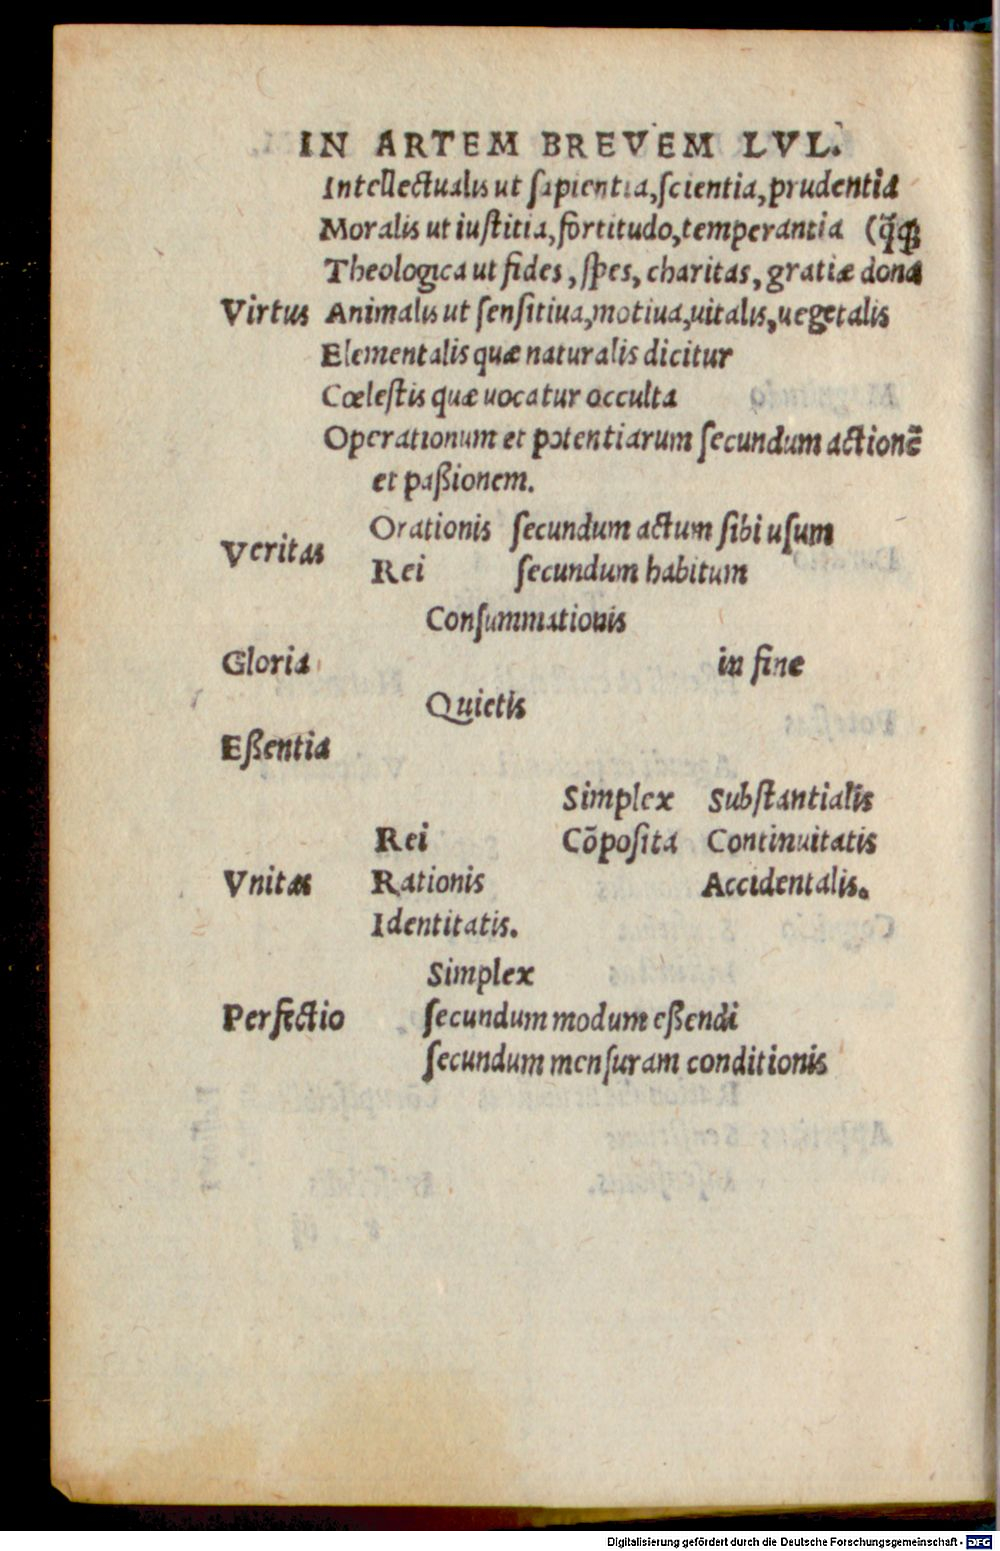 IN ARTEM BREVEM LVL.
Intellectualis ut ſapientia,ſcientia,prudentia
Moralis ut iuſtitia,fortitudo,temperantia (q̃qꝫ
Theologica ut fides, ſpes, charitas, gratiæ dona
Virtus Animalis ut ſenſitiua,motiua,uitalis,uegetalis
Elementalis quæ naturalis dicitur
Cœleſtis quæ uocatur occulta
Operationum et potentiarum ſecundum actionẽ
et paßionem.
Orationis ſecundum actum ſibi uſum
Veritas
Rei ſecundum habitum
Conſummationis
Gloria in fine
Quietis
Eßentia
Simplex Subſtantialis
Rei Cõpoſita Continuitatis
Vnitas Rationis Accidentalis.
Identitatis.
Simplex
Perfectio ſecundum modum eßendi
ſecundum menſuram conditionis
Digitalisierung gefördert durch die Deutsche Forschungsgemeinschaft - DFG